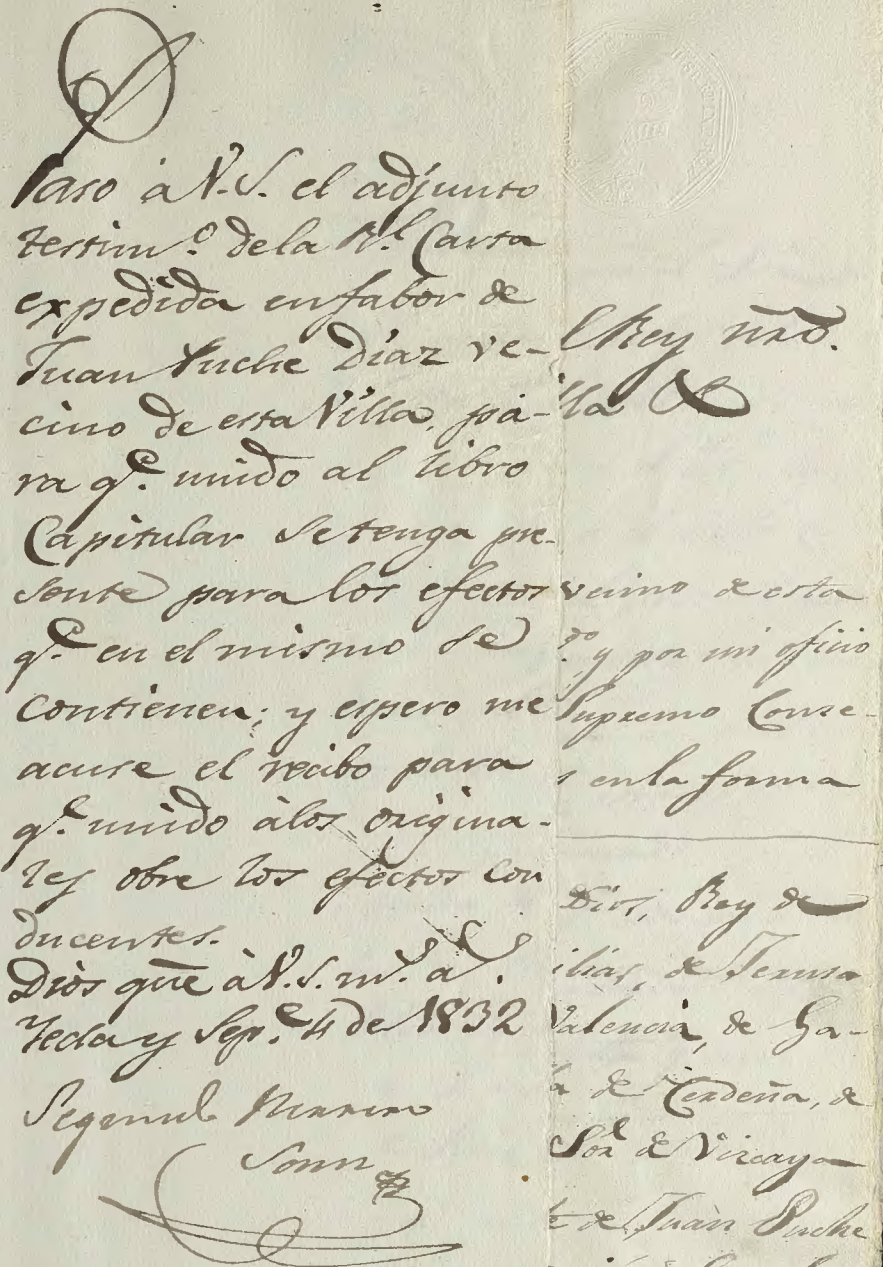 Paso à V.S. el adjunto
testim.º dela R.l Carta
expedida enfabor de
Juan Puche Diaz ve-
cino de esta Villa, pa-
ra q.e unido al libro
Capitular se tenga pre-
sente para los efectos
q.e en el mismo se
contienen; y espero me
acuse el recibo para
q.e unido àlos origina-
les obre los efectos con
ducentes.
Dios gūe à V.S. m.s a.s
Yecla y Sep.e 4 de 1832
l Rey nro.
lla
vecino de esta
y por mi oficio
Supremo Conse-
s enla forma
Dios, Rey de
ilias, de Jerusa
Valencia, de Ga-
de Cerdeña, de
Sōr de Vizcaya
te de Juan Puche